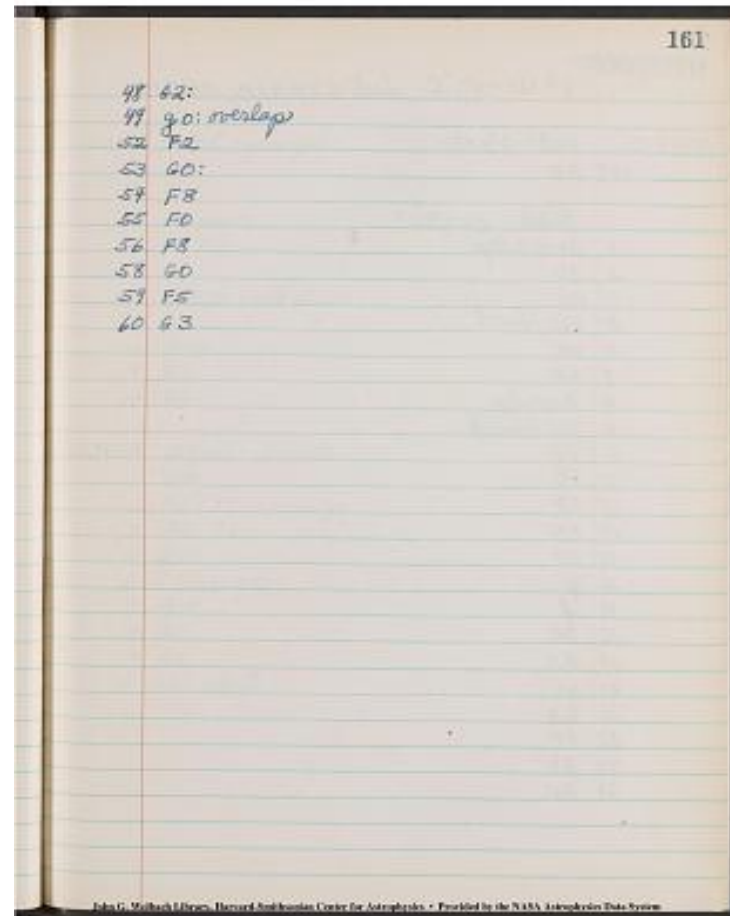 161
48 G2:
49 g0: overlaps
52 F2
53 G0:
54 F8
55 F0
56 F8
58 G0
59 F5
60 G3
John G. Wolbach Library, Harvard-Smithsonian Center for Astrophysics • Provided by the NASA Astrophysics Data System